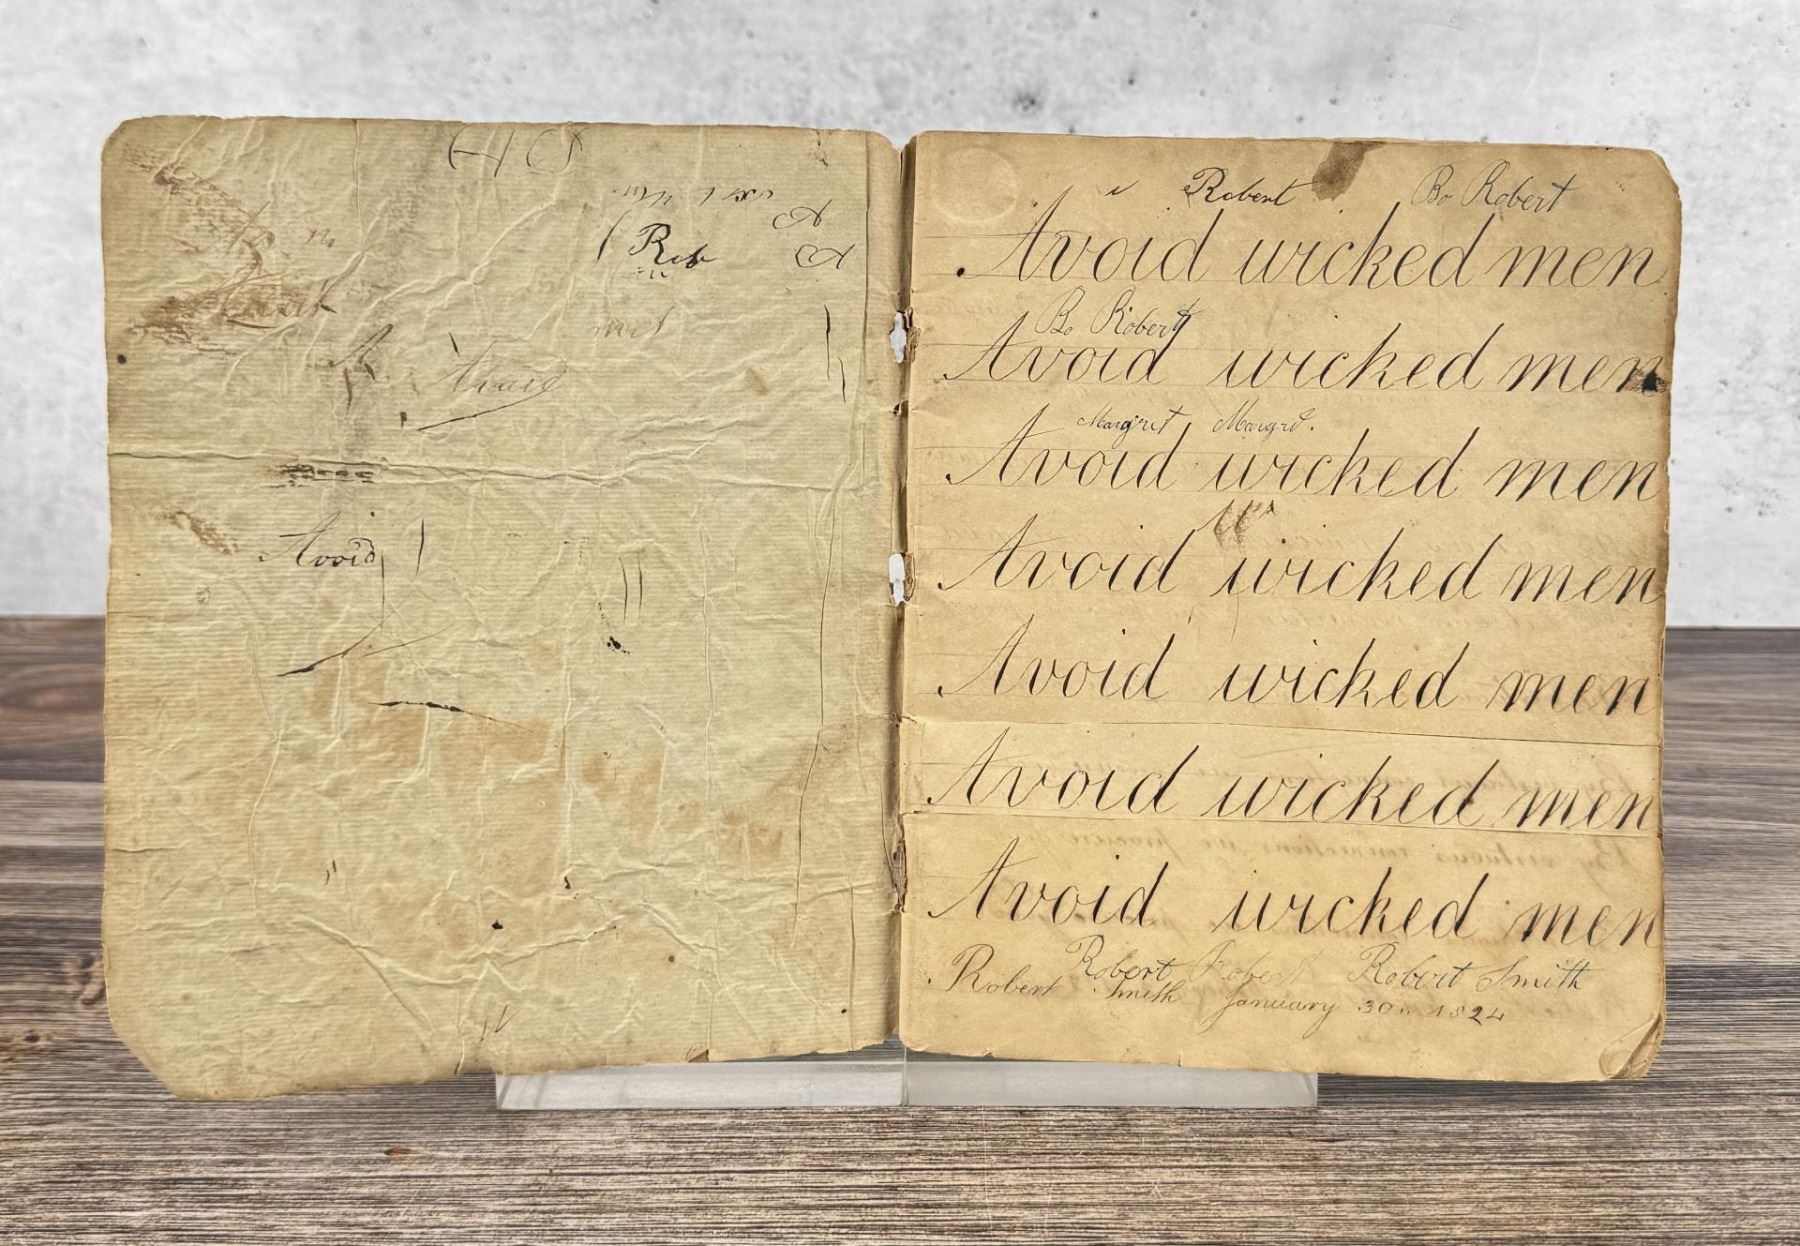 Rob
met
Avoid
Avoid
Robert Bo Robert
Avoid wicked men
Bo Robert
Avoid wicked men
Margret Margret.
Avoid wicked men
Avoid wicked men
Avoid wicked men
Avoid wicked men
Avoid wicked men
Robert Robert Robert Smith
Robert Smith January 30 1824